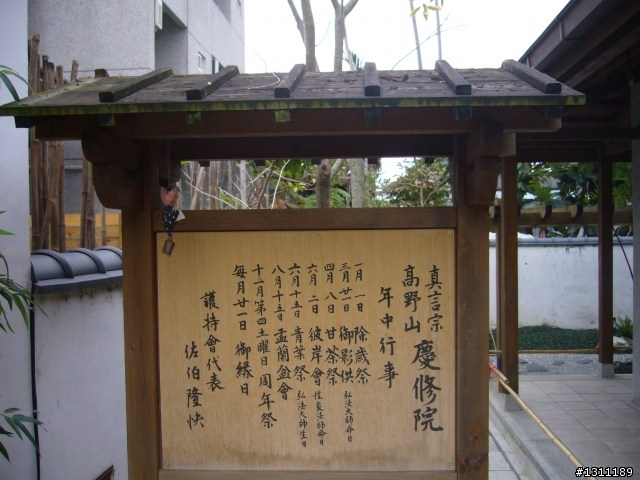 真言宗
高野山 慶修院
年中行事
一月一日 除歳祭
三月廿一日 御影供 弘法大師命日
四月八日 甘茶祭
六月二日 彼岸會 性良法師命日
六月十五日 青葉祭 弘法大師生日
八月十五日 盂蘭盆會
十一月第四土曜日 周年祭
毎月廿一日 御縁日
護持會代表
佐伯隆快
#1311189